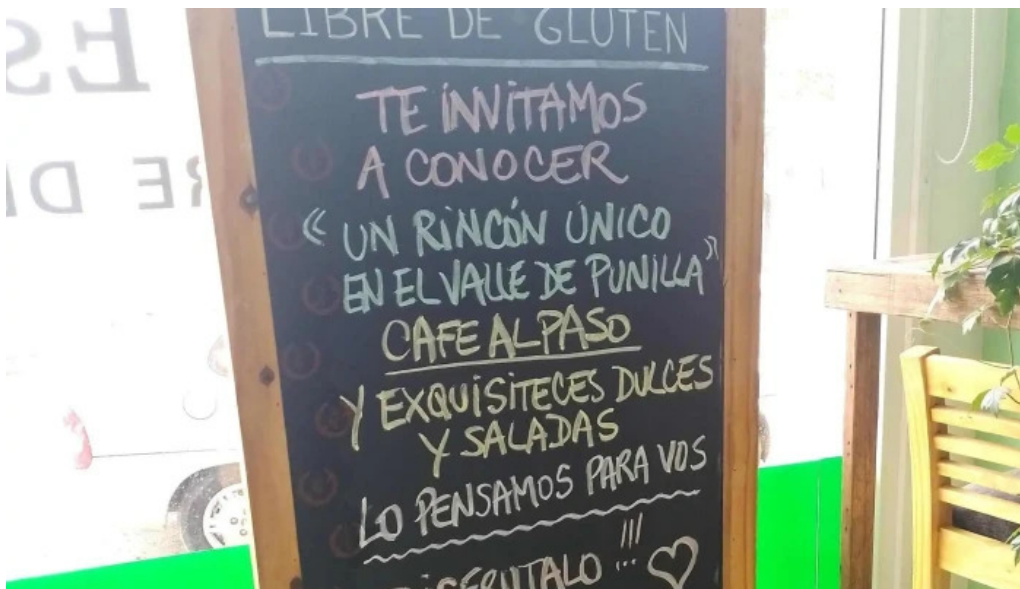 LIBRE DE GLUTEN
TE INVITAMOS
A CONOCER
« UN RINCÓN ÚNICO
EN EL VALLE DE PUNILLA”
CAFE AL PASO
Y EXQUISITECES DULCES
Y SALADAS
LO PENSAMOS PARA VOS
DISFRUTALO !!!